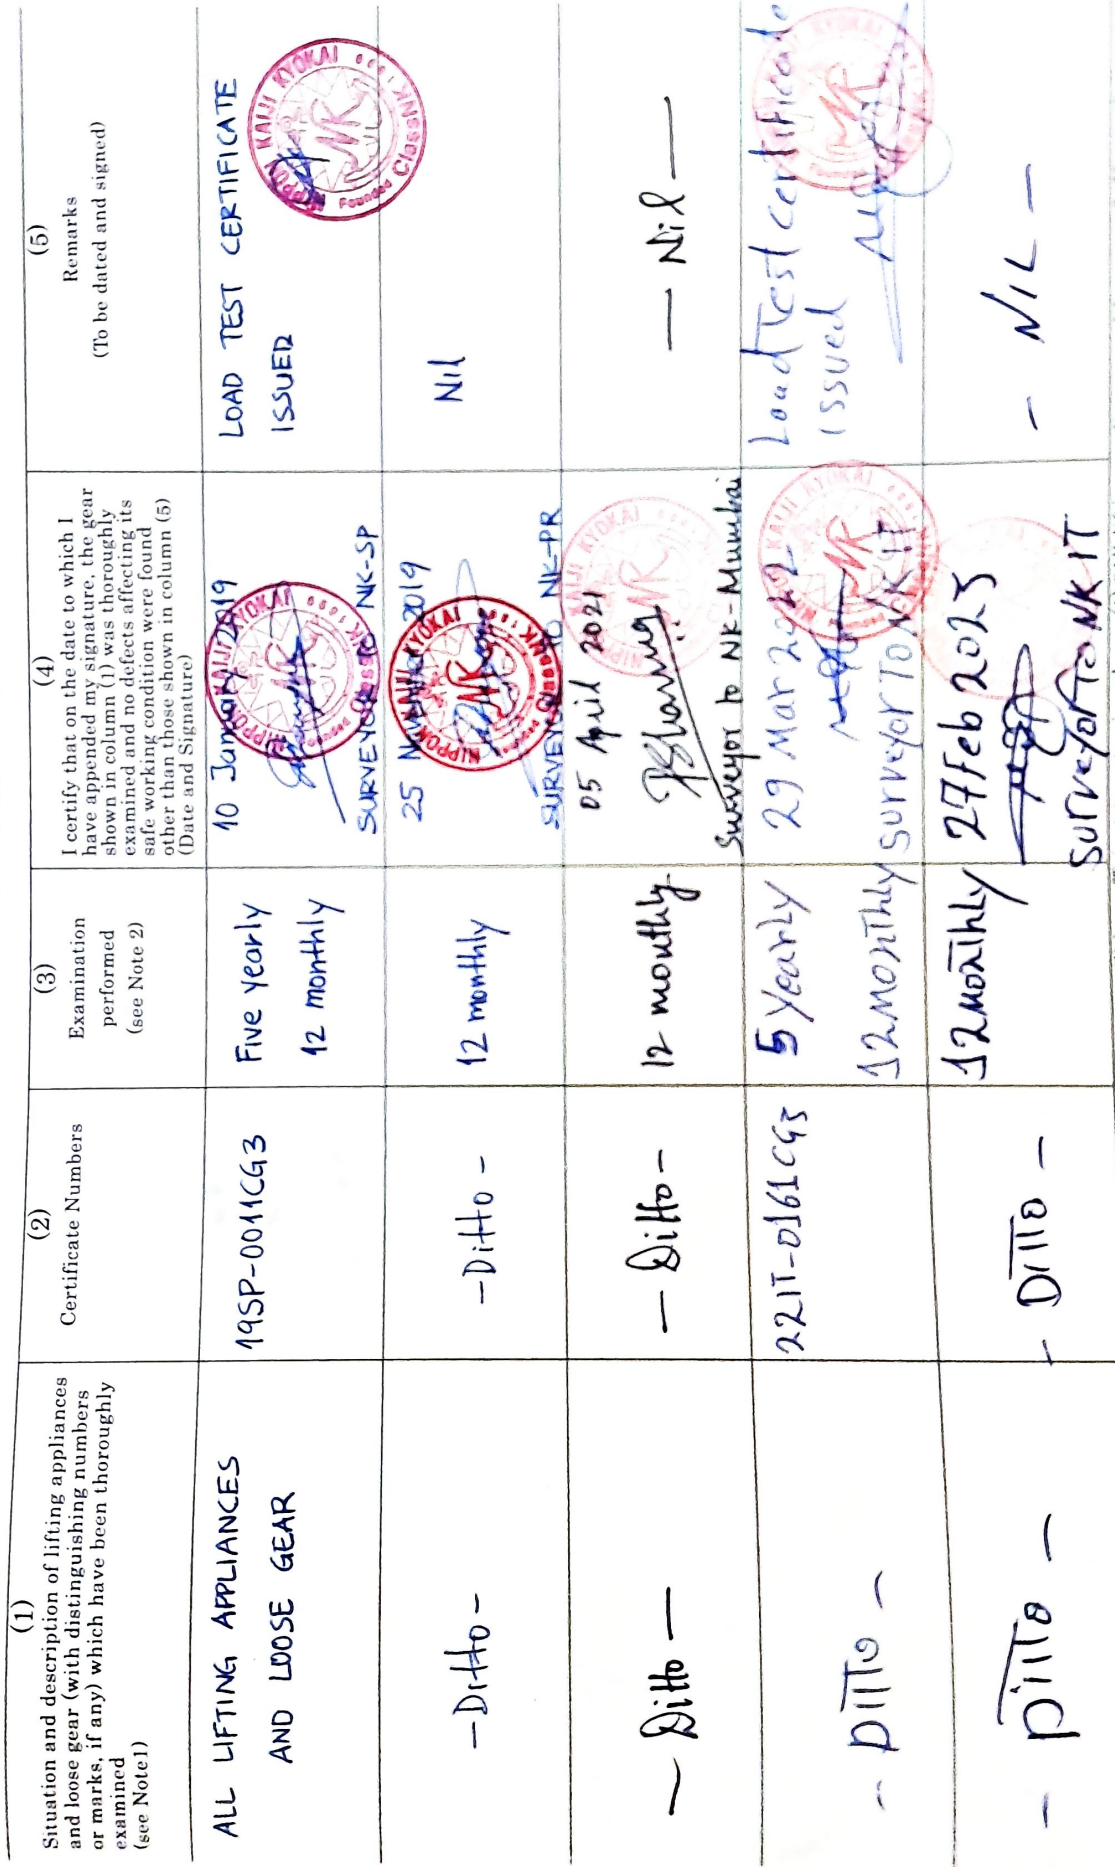 (1)
Situation and description of lifting appliances
and loose gear (with distinguishing numbers
or marks, if any) which have been thoroughly
examined
(see Note1)
(2)
Certificate Numbers
(3)
Examination
performed
(see Note 2)
(4)
I certify that on the date to which I
have appended my signature, the gear
shown in column (1) was thoroughly
examined and no defects affecting its
safe working condition were found
other than those shown in column (5)
(Date and Signature)
(5)
Remarks
(To be dated and signed)
ALL LIFTING APPLIANCES
AND LOOSE GEAR
19SP-0011CG3
Five yearly
12 monthly
10 January 2019
NIPPON KAIJI KYOKAI
ClassNK
SURVEYOR TO NK-SP
LOAD TEST CERTIFICATE
ISSUED
NIPPON KAIJI KYOKAI
Founded
ClassNK
-Ditto-
-Ditto-
12 monthly
25 2019
NIPPON KAIJI KYOKAI
ClassNK
SURVEYOR TO NK-PR
Nil
- Ditto -
- Ditto -
12 monthly
05 April 2021
NIPPON KAIJI KYOKAI
Surveyor to NK-Mumbai
- Nil -
- DITTO -
22IT-0161CG3
5 Yearly
12 Monthly
29 Mar 2022
KAIJI KYOKAI
Surveyor To NK IT
Load Test certificate
issued
- DITTO -
- DITTO -
12 Monthly
27 Feb 2023
Surveyor To NK IT
- NIL -